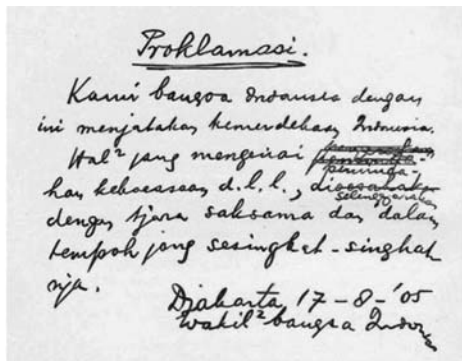 Proklamasi.
Kami bangsa Indonesia dengan
ini menjatakan kemerdekaan Indonesia.
Hal² jang mengenai
peminda-
han kekoeasaan d.l.l., dioesahakan
selenggarakan
dengan tjara saksama dan dalam
tempoh jang sesingkat-singkat
nja.
Djakarta, 17 - 8 - '05
Wakil² bangsa